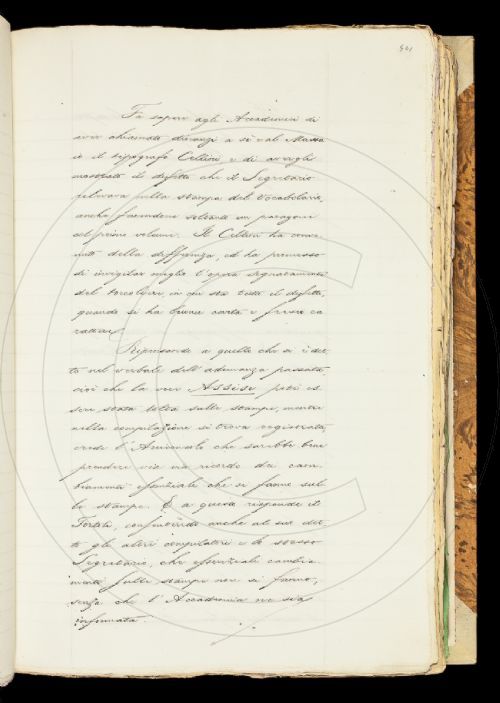 541
Fa sapere agli Accademici di
aver chiamato dinanzi a sè e al Massa
io il tipografo Cellini e di avergli
mostrato il difetto che il Segretario
rilevava nella stampa del Vocabolario,
anche facendone soltanto un paragone
col primo volume. Il Cellini ha conve
nuto della differenza, ed ha promesso
di invigilar meglio l'opera segnatamente
del torcoliere, in cui sta tutto il difetto,
quando si ha buona carta e buoni ca
ratteri.
Ripensando a quello che si è det
to nel verbale dell'adunanza passata
cioè che la voce Assise potè es
sere stata tolta sulle stampe, mentre
nella compilazione si trova registrata,
crede l'Arciconsolo che sarebbe bene
prendere via via ricordo dei cam
biamenti essenziali che si fanno sul
le stampe. E a questo risponde il
Tortoli, confortando anche al suo det
to gli altri compilatori e lo stesso
Segretario, che essenziali cambia
menti sulle stampe non si fanno,
senza che l'Accademia ne sia
informata.